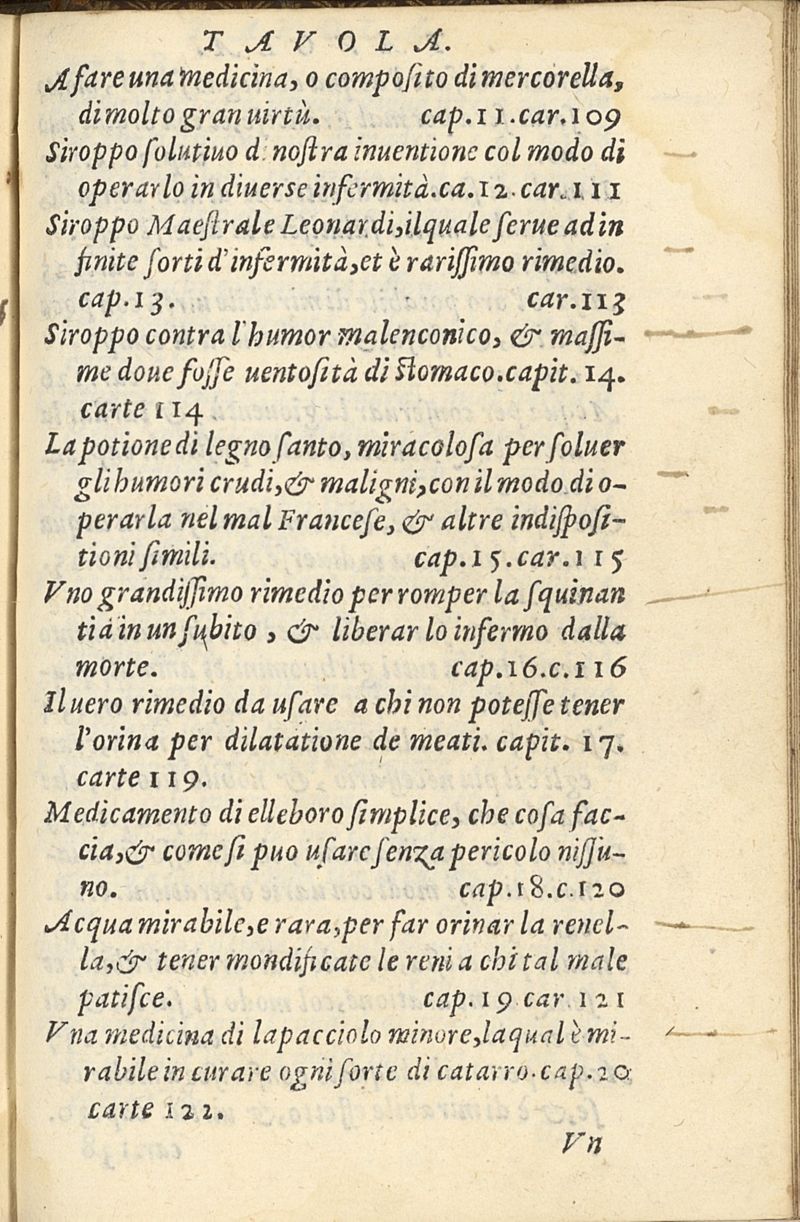 TAVOLA.
A fare una medicina, o composito di mercorella,
di molto gran uirtù. cap.11.car.109
Siroppo ſolutiuo d nostra inuentione col modo di
operarlo in diuerse infermità.ca.12.car.111
Siroppo Maestrale Leonardi,ilquale ſerue ad in
finite ſorti d'infermità,et è rariſſimo rimedio.
cap.13. car.113
Siroppo contra l'humor malenconico, & maſſi-
me doue foſſe uentoſità di stomaco.capit. 14.
carte 114
La potione di legno ſanto, miracoloſa per ſoluer
gli humori crudi,& maligni,con il modo di o-
perarla nel mal Franceſe, & altre indiſpoſi-
tioni ſimili. cap.15.car.115
Vno grandiſſimo rimedio per romper la ſquinan
tia in un ſubito , & liberar lo infermo dalla
morte. cap.16.c.116
Il uero rimedio da uſare a chi non poteſſe tener
l'orina per dilatatione de meati. capit. 17.
carte 119.
Medicamento di elleboro ſimplice, che coſa fac-
cia,& come ſi puo uſare ſenza pericolo niſſu-
no. cap.18.c.120
Acqua mirabile,e rara,per far orinar la renel-
la,& tener mondificate le reni a chi tal male
patiſce. cap.19 car 121
Vna medicina di lapacciolo minore,laqual è mi-
rabile in curare ogni ſorte di catarro.cap.20
carte 122.
Vn